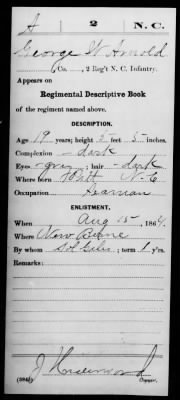 A 2 N.C.
George W Arnold
Co. , 2 Reg't N. C. Infantry.
Appears on
Regimental Descriptive Book
of the regiment named above.
DESCRIPTION.
Age 19 years; height 5 feet 5 inches.
Complexion dark
Eyes grey ; hair dark
Where born Pitt N-C
Occupation Seaman
ENLISTMENT.
When Aug 15 , 1864.
Where New Berne
By whom ; term 1 y'rs.
Remarks:
J Underwood
Copyist.